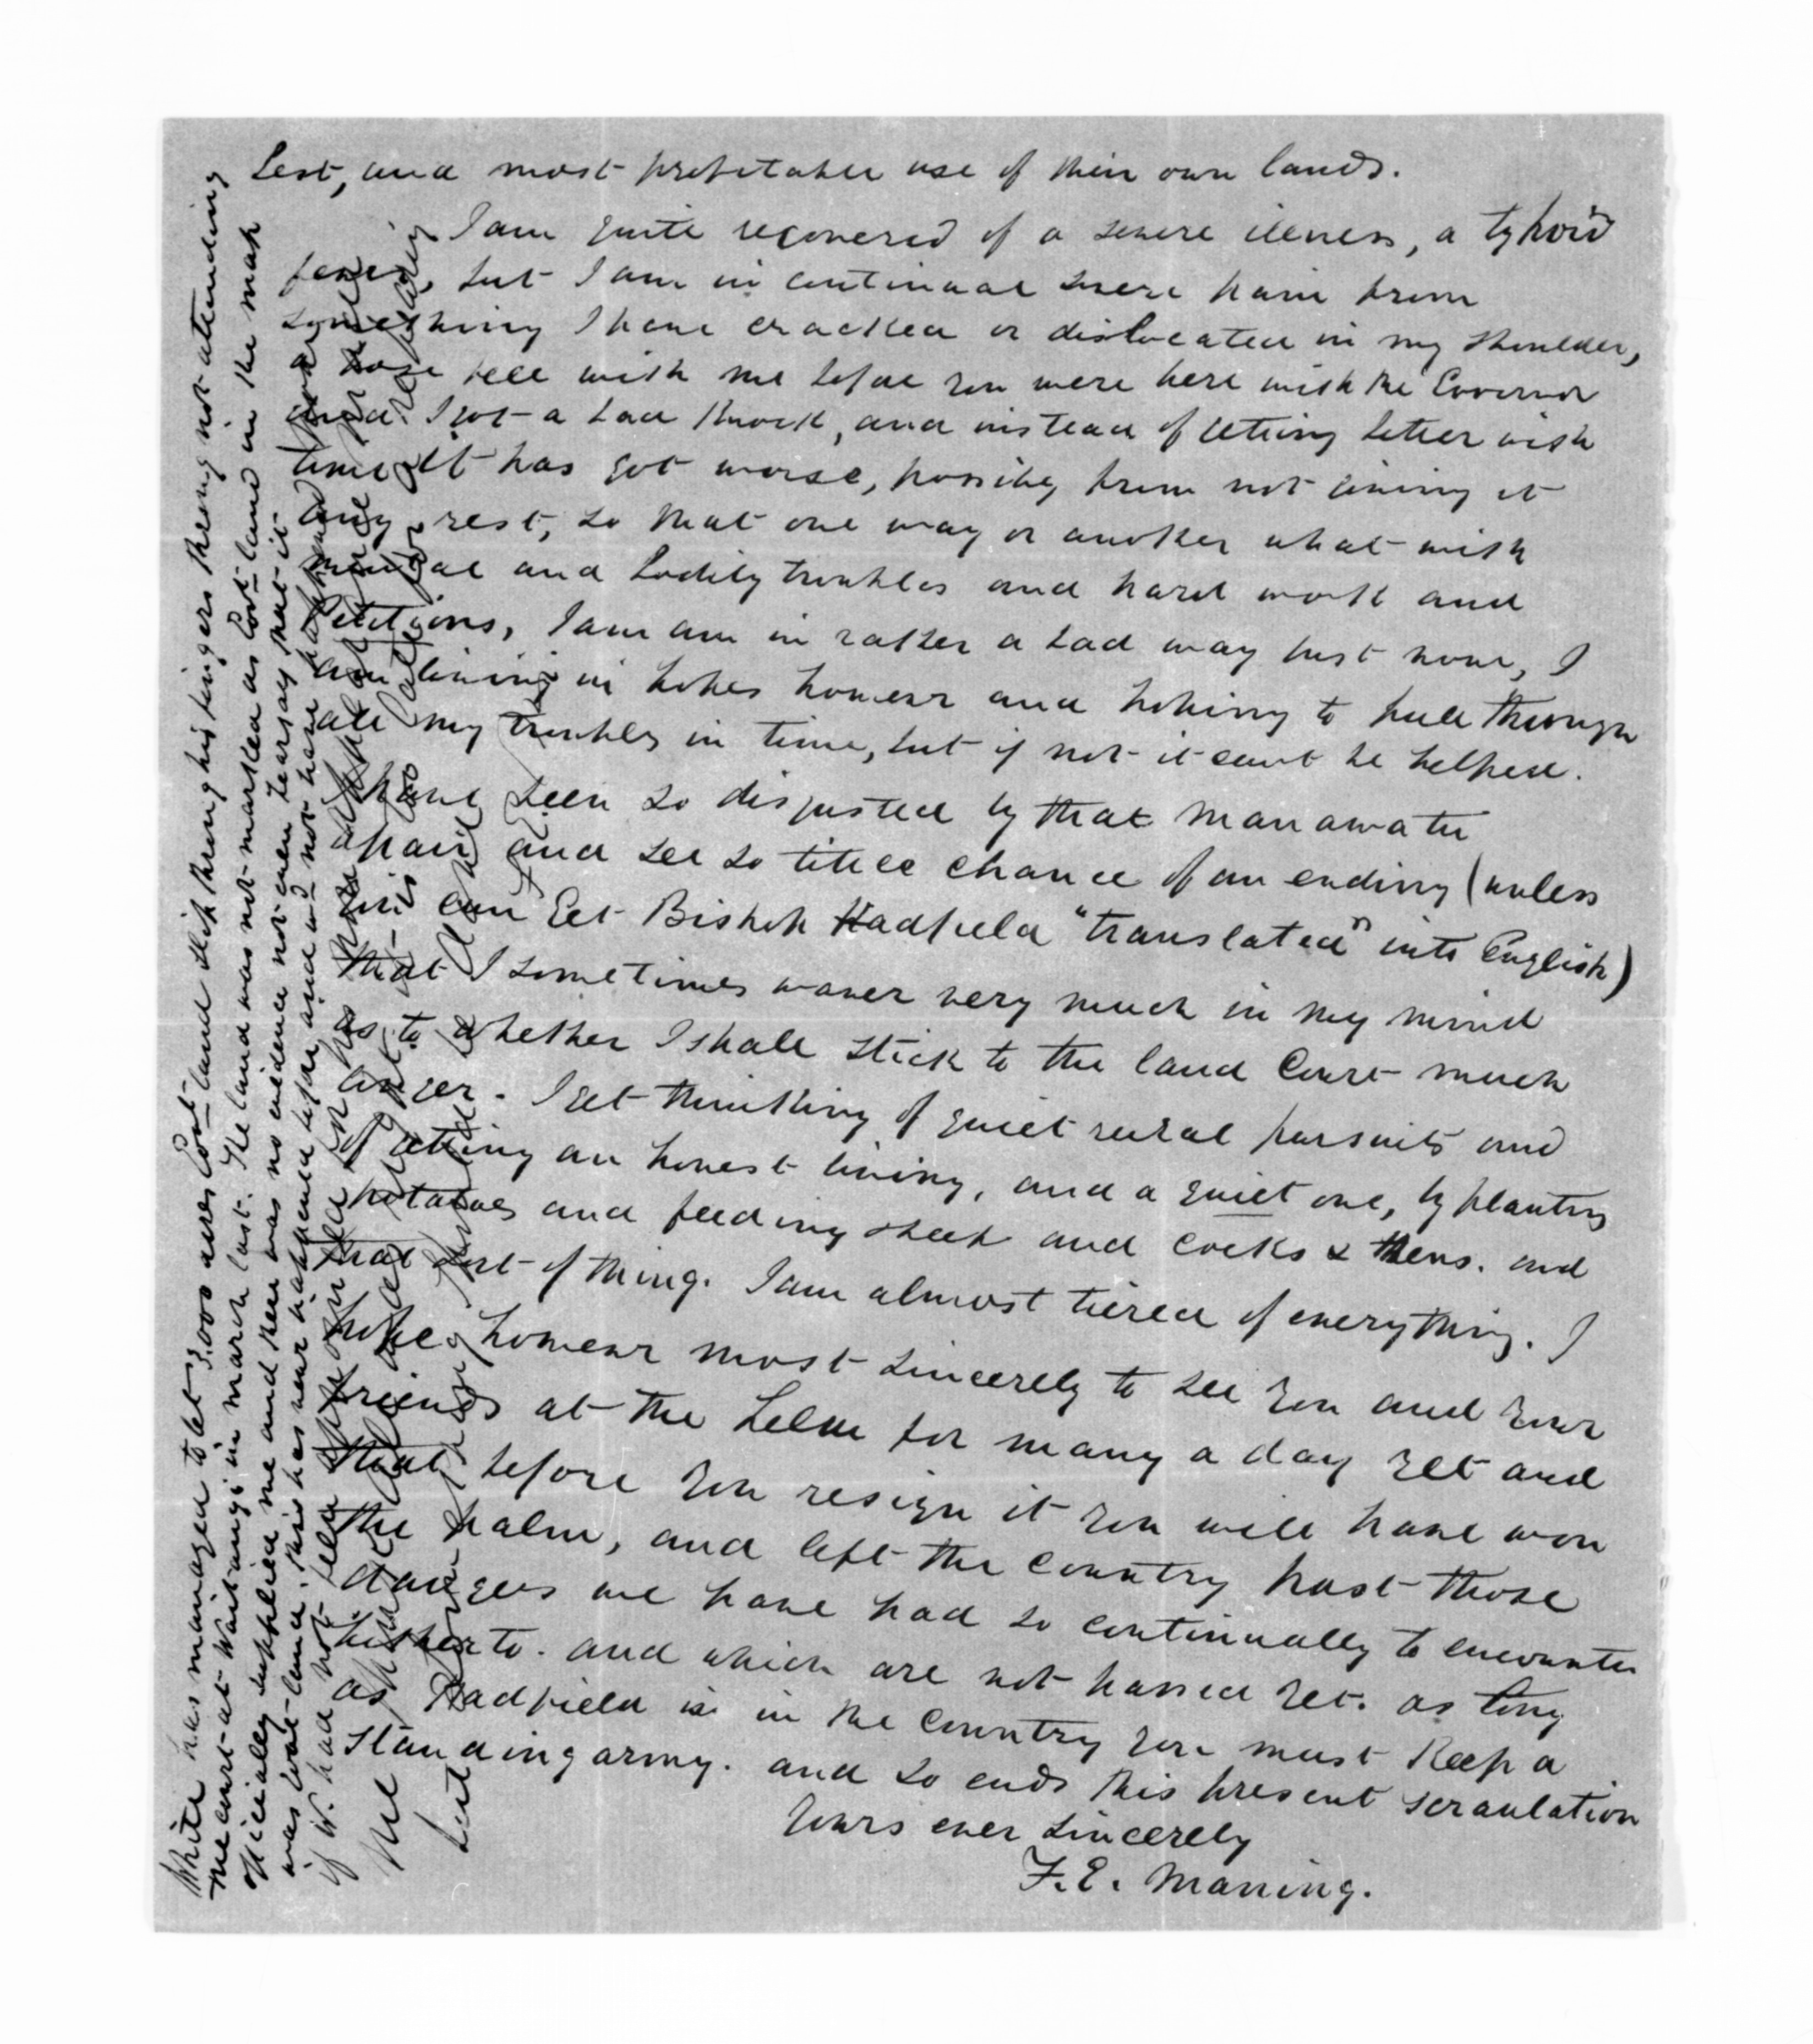 best, and most profitable use of their own lands.
I am quite recovered of a severe illness, a tyhoid
fever, but I am in continual severe pain from
something I have cracked or dislocated in my shoulder,
a horse fell with me before you were here with the Governor
and I got a bad knock, and instead of getting better with
time it has got worse, possibly from not giving it
any rest, so that one way or another what with
mental and bodily troubles and hard work and
Petitions, I am am in rather a bad way just now, I
am living in hopes however and hoping to pull through
all my troubles in time, but if not it cant be helped.
I have been so disgusted by that Manawatu
affair and see so little chance of an ending (unless
we can get Bishop Hadfield "translated" into English)
that I sometimes waver very much in my mind
as to whether I shall stick to the land Court much
longer. I get thinking of quiet rural pursuits and
of getting an honest living, and a quiet one, by planting
potatoes and feeding sheep and cocks & hens. and
that sort of thing. I am almost tiered of everything. I
hope however most sincerely to see you and your
friends at the helm for many a day yet and
that before you resign it you will have won
the palm, and left the country past those
dangers we have had so continually to encounter
hitherto. and which are not passed yet. as long
as Hadfield is in the country you must keep a
standing army. and so ends this present scraulation
Yours ever sincerely
F. E. Maning.
White has managed to let 3,000 acres Cont. land slip through his fingers through not attending
the court at Waitangi in march last. The land was not marked as Cont. land in the map
officially supplied me and there was no evidence not even hearsay that it
was Cont. land. this has never happened before and wd. not have happened
if W. had not
me
but